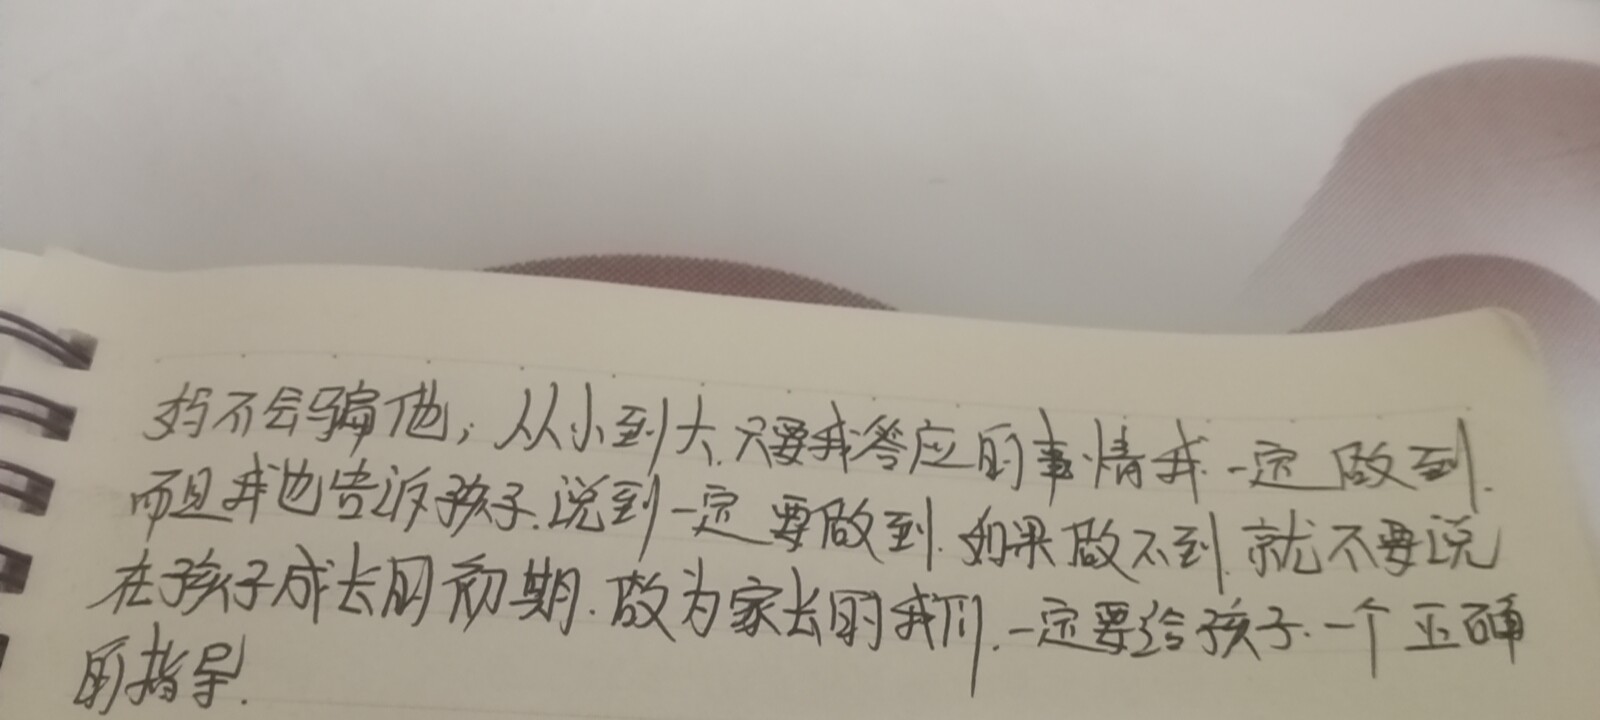 妈不会骗他，从小到大.只要我答应的事情我.一定做到.
而且我也告诉孩子.说到一定要做到.如果做不到.就不要说
在孩子成长的初期.做为家长的我们.一定要给孩子.一个正确
的指导.